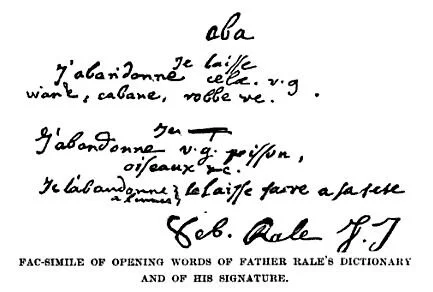 aba
Je laisse
J'abandonne cela. v.g
viande, cabane, robbe &c.
J'en
J'abandonne v.g. poisson,
oiseaux &c.
Je l'abandonne } le laisse faire a sa teste
Seb. Rale S. J
FAC-SIMILE OF OPENING WORDS OF FATHER RALE'S DICTIONARY
AND OF HIS SIGNATURE.